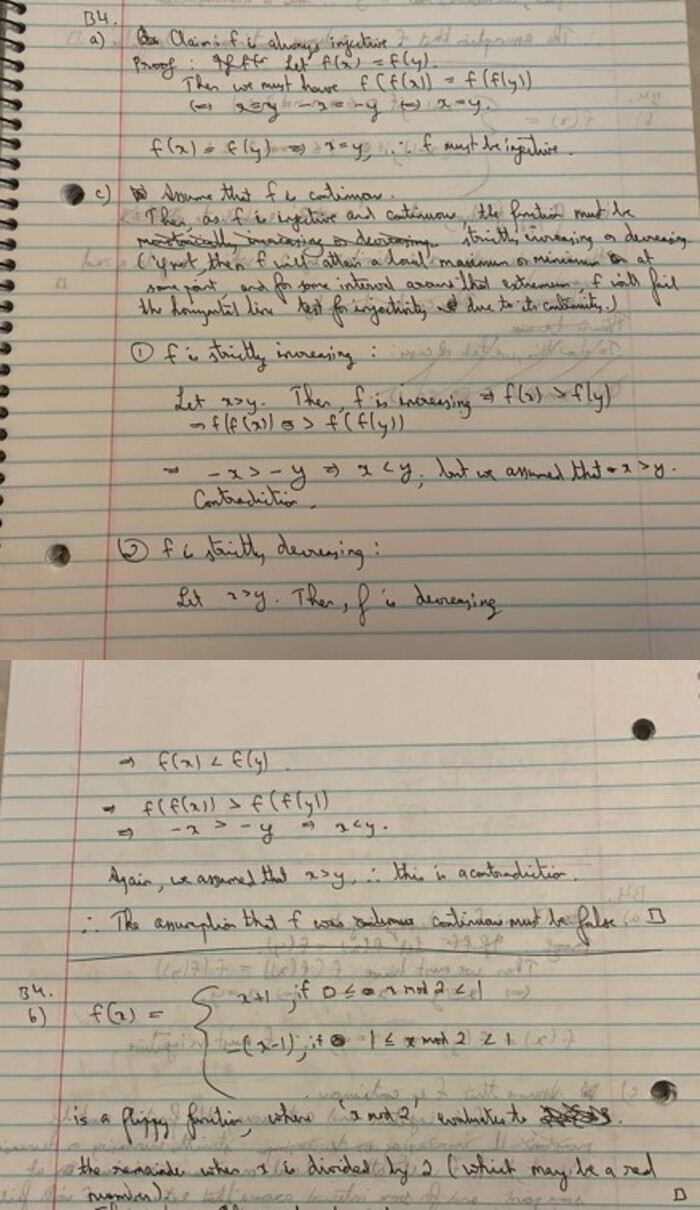 B4.
a) Claim: f is always injective
Proof : Let f(x) = f(y).
Then we must have f(f(x)) = f(f(y))
⇔ -x = -y ⇔ x=y.
f(x) = f(y) ⇒ x=y, ∴ f must be injective.
c) Assume that f is continuous.
Then, as f is injective and continuous, the function must be
monotonically increasing or decreasing strictly increasing or decreasing
(if not, then f will attain a local maximum or minimum at
some point, and for some interval around that extremum, f will fail
the horizontal line test for injectivity due to its continuity.)
① f is strictly increasing :
Let x>y. Then, f is increasing ⇒ f(x) > f(y)
⇒ f(f(x)) > f(f(y))
⇒ -x > -y ⇒ x < y, but we assumed that x > y.
Contradiction.
② f is strictly decreasing :
Let x>y. Then, f is decreasing
⇒ f(x) < f(y).
⇒ f(f(x)) > f(f(y))
⇒ -x > -y ⇒ x<y.
Again, we assumed that x>y, ∴ this is a contradiction.
∴ The assumption that f was continuous must be false. □
B4.
b) f(x) = { x+1, if 0 ≤ x mod 2 < 1
-(x-1), if 1 ≤ x mod 2 < 1
is a flippy function, where 'x mod 2' evaluates to
the remainder when x is divided by 2 (which may be a real
number). □